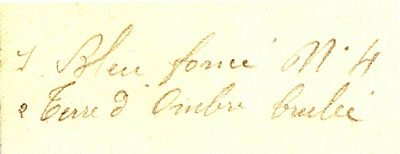 1 Bleu foncé N. 4
2 Terre d'Ombre brulée